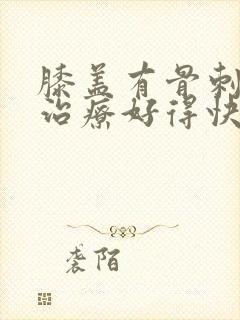 膝盖有骨刺
治疗好得快
袭陌